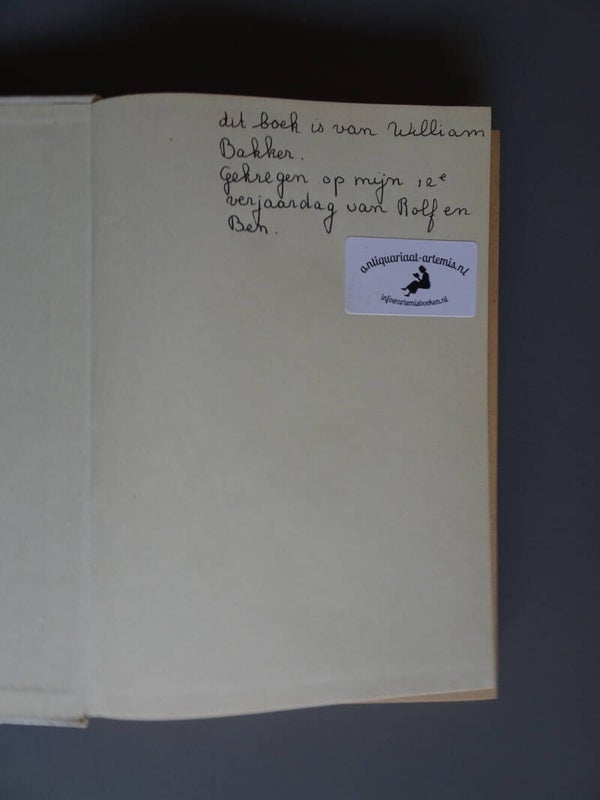 dit boek is van William
Bakker.
Gekregen op mijn 12e
verjaardag van Rolf en
Ben.
antiquariaat-artemis.nl
info@artemisboeken.nl